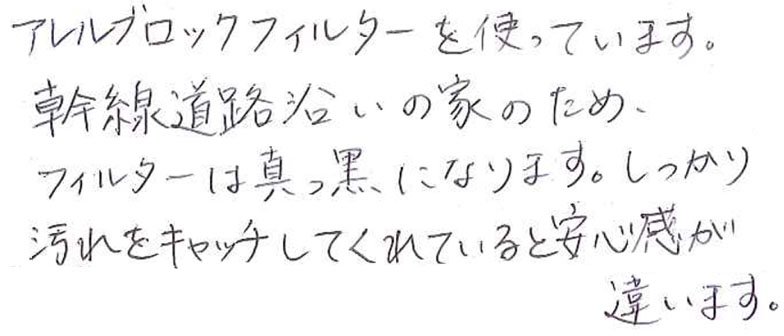 アレルブロックフィルターを使っています。
幹線道路沿いの家のため、
フィルターは真っ黒になります。しっかり
汚れをキャッチしてくれていると安心感が
違います。